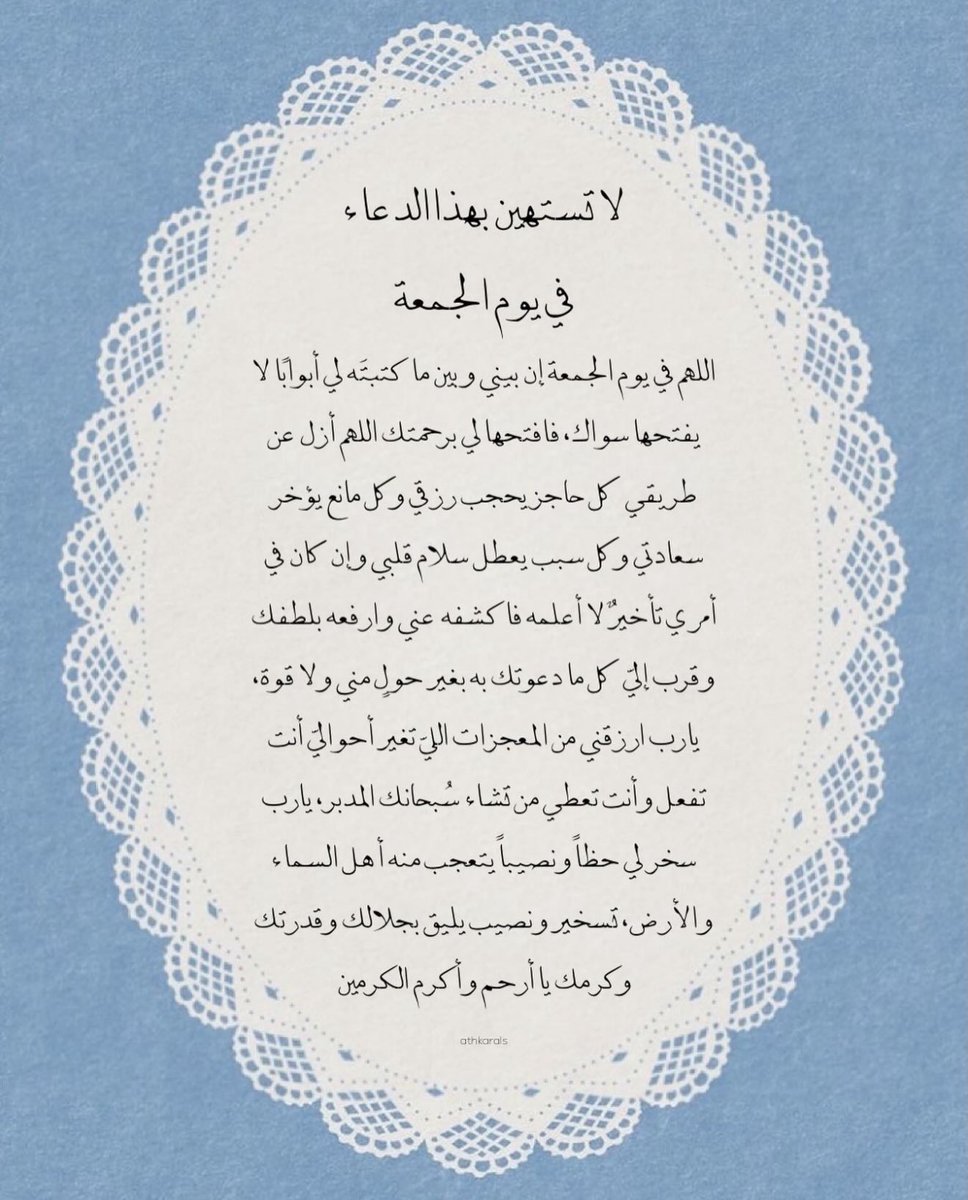 لا تستهين بهذا الدعاء
في يوم الجمعة
اللهم في يوم الجمعة إن بيني وبين ما كتبتَه لي أبوابًا لا
يفتحها سواك، فافتحها لي برحمتك اللهم أزل عن
طريقي كل حاجز يحجب رزقي وكل مانع يؤخر
سعادتي وكل سبب يعطل سلام قلبي وإن كان في
أمري تأخيرٌ لا أعلمه فاكشفه عني وارفعه بلطفك
وقرب إليّ كل ما دعوتك به بغير حولٍ مني ولا قوة،
يارب ارزقني من المعجزات الليَ تغير أحواليَ أنت
تفعل وأنت تعطي من تشاء سُبحانك المدبر، يارب
سخر لي حظاً ونصيباً يتعجب منه أهل السماء
والأرض، تسخير ونصيب يليق بجلالك وقدرتك
وكرمك يا أرحم وأكرم الكرمين
athkarals